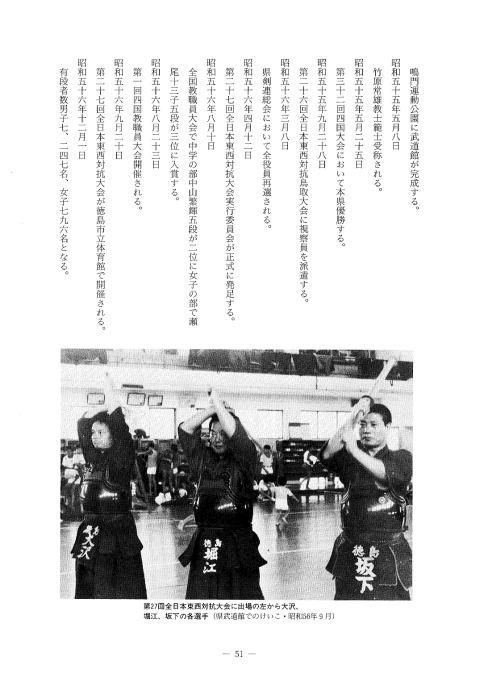 鳴門運動公園に武道館が完成する。
昭和五十五年五月八日
竹原常雄教士範士受称される。
昭和五十五年五月二十五日
第三十二回四国大会において本県優勝する。
昭和五十五年九月二十八日
第二十六回全日本東西対抗鳥取大会に視察員を派遣する。
昭和五十六年三月八日
県剣連総会において全役員再選される。
昭和五十六年四月十二日
第二十七回全日本東西対抗大会実行委員会が正式に発足する。
昭和五十六年八月十日
全国教職員大会で中学の部中山繁輝五段が二位に女子の部で瀬
尾十三子五段が三位に入賞する。
昭和五十六年八月二十三日
第一回四国教職員大会開催される。
昭和五十六年九月二十日
第二十七回全日本東西対抗大会が徳島市立体育館で開催される。
昭和五十六年十二月一日
有段者数男子七、二四七名、女子七九六名となる。
大沢
徳島
堀江
徳島
坂下
第27回全日本東西対抗大会に出場の左から大沢、
堀江、坂下の各選手（県武道館でのけいこ・昭和56年9月）
— 51 —